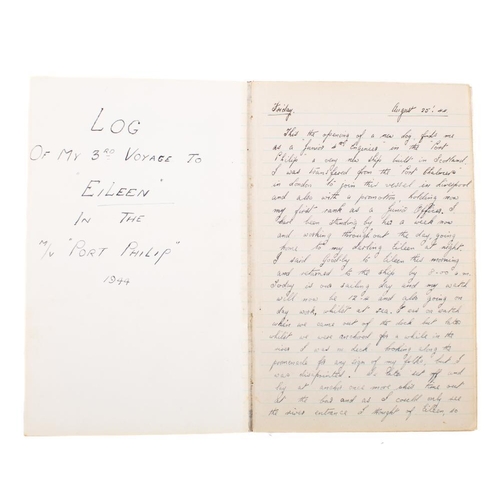 LOG
OF MY 3RD VOYAGE TO
"EILEEN"
IN THE
M/V "PORT PHILIP"
1944
Friday. August 25th 44
This the opening of a new log, finds me
as a "junior 4th Engineer" in the "Port
Philip" a very new ship built in Scotland.
I was transferred from the "Port Chalmers"
in London to join this vessel in Liverpool
and also with a promotion, holding now
my first rank as a Junior Officer. I
had been standing by her a week now
and working throughout the day, going
home to my darling Eileen at night.
I said Goodbye to Eileen this morning
and returned to the ship by 8-00 a.m.
Today is our sailing day and my watch
will now be 12-4 and also going on
day work, whilst at sea. I was on watch
when we came out of the dock but later
whilst we were anchored for a while in the
river I was on deck looking along the
promenade for any sign of my folks, but I
was disappointed. I later set off and
lay at anchor once more, this time out
at the bar and as I could only see
the rivers entrance I thought of Eileen, so